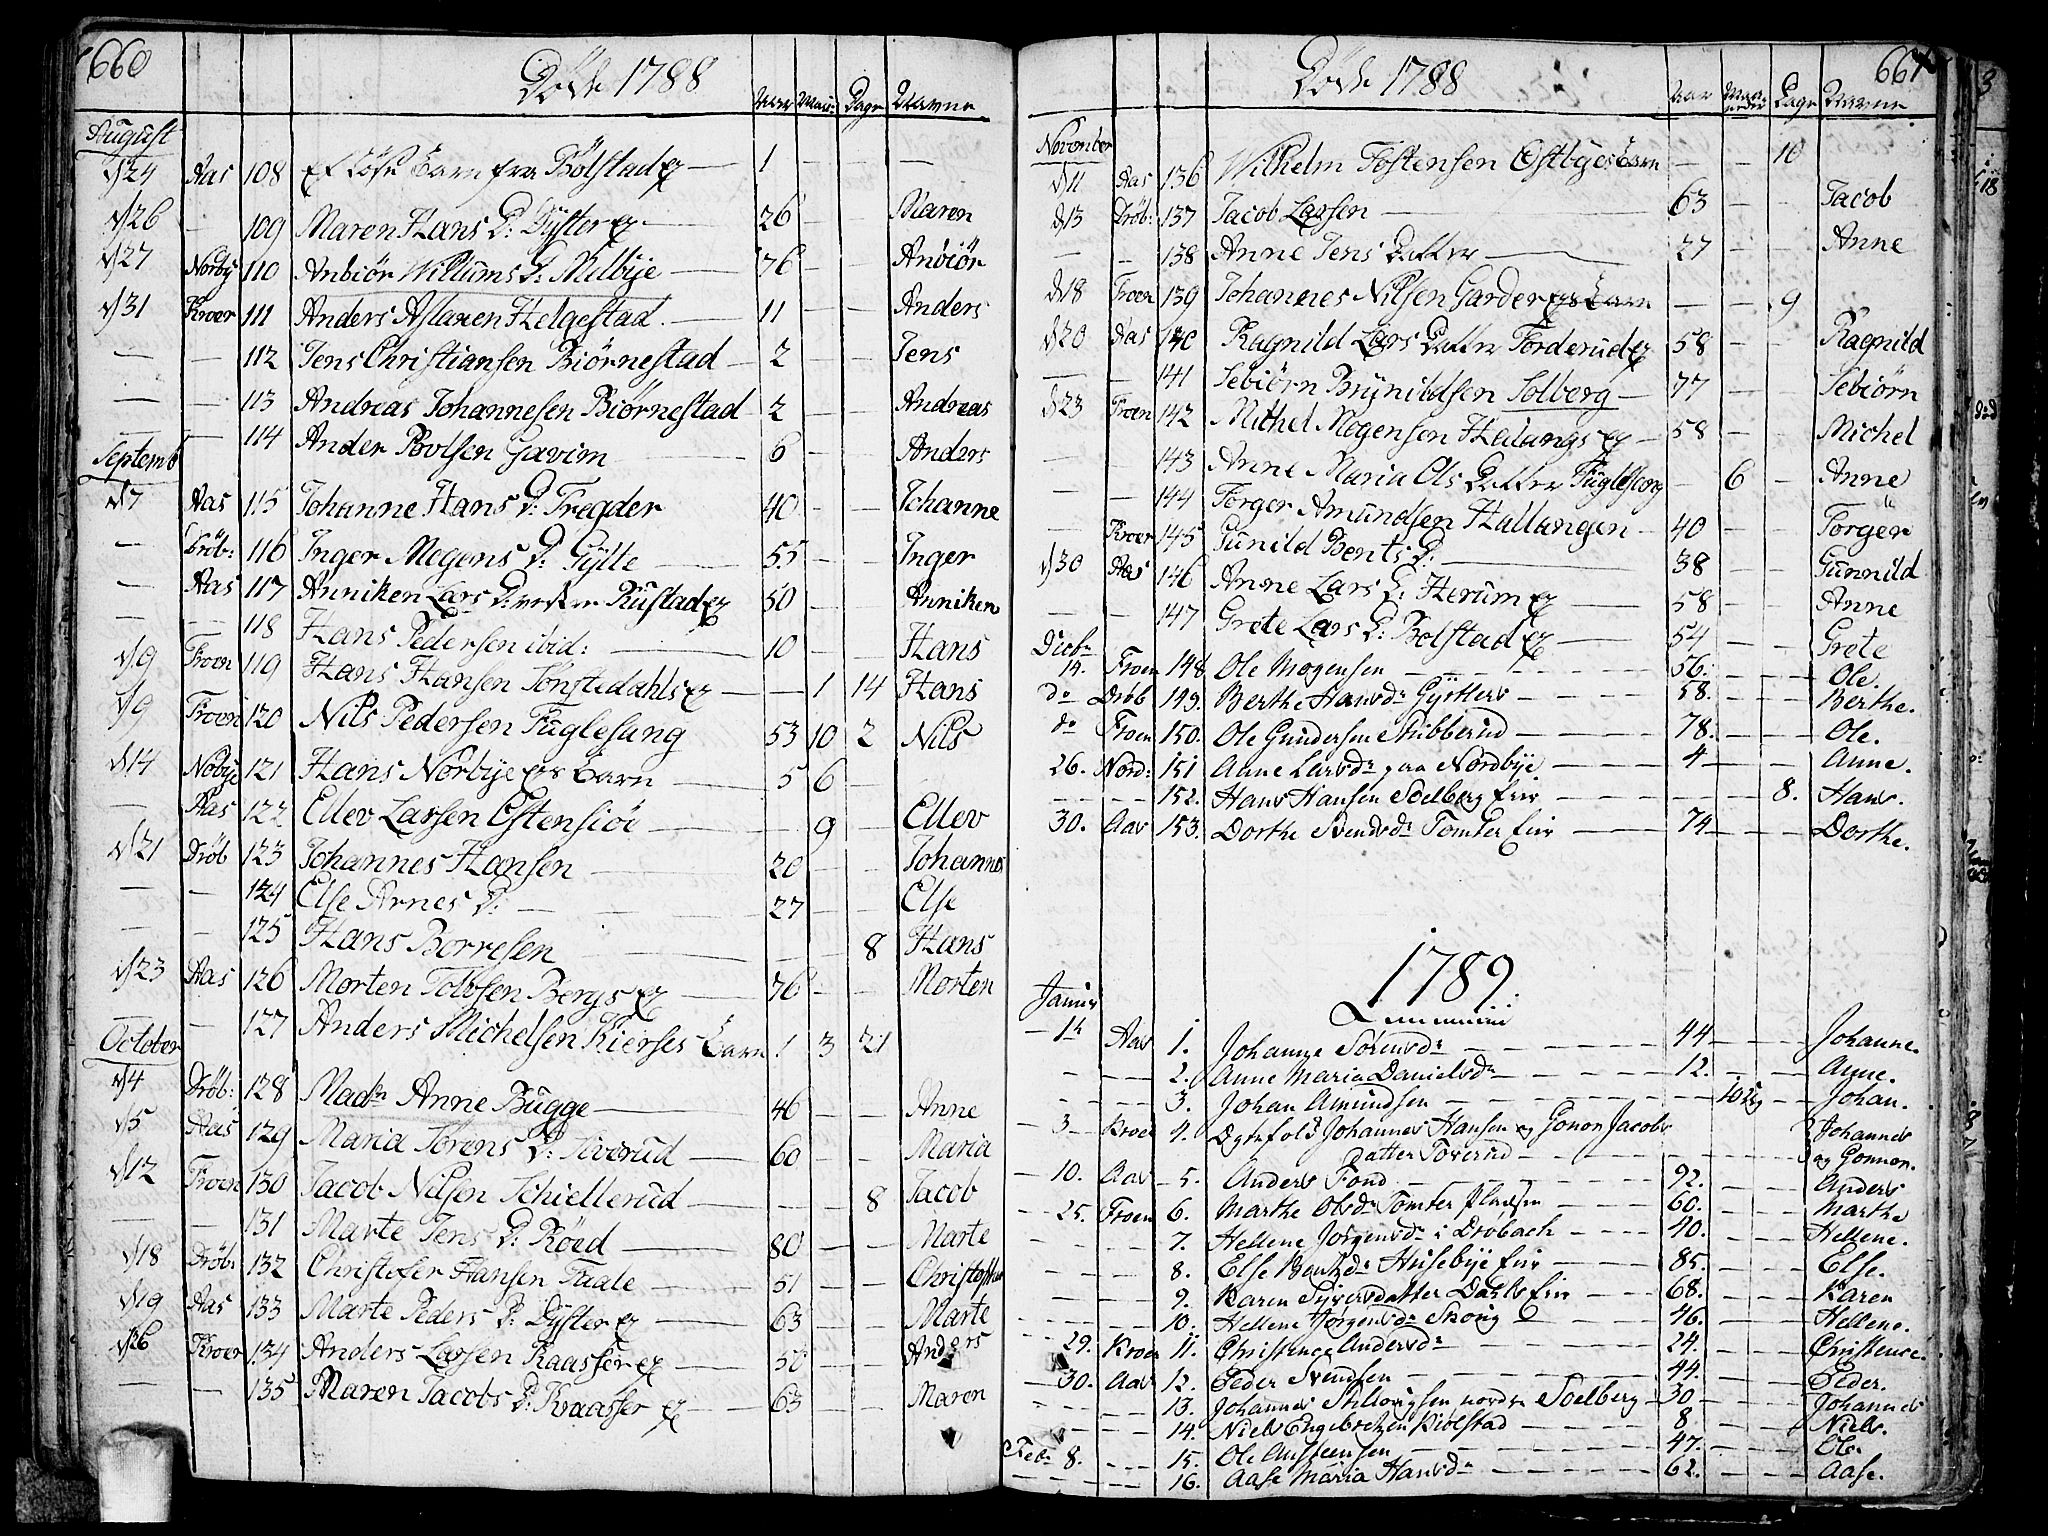 660
Døde 1788
Aar Maan: Dage Navne
August
d 24 Aas 108 Et døfø Barn fra Bølstad ey — 1 — —
d 26 - 109 Maren Hans D: Dyster ey — 26 — — Maren
d 27 Norby 110 Anbiør Willums D: Melbye — 76 — — Anbiør
d 31 Kroer 111 Anders Aslaxen Helgestad — 11 — — Anders
— — 112 Jens Christiansen Biørnestad — 2 — — Jens
— — 113 Andreas Johannesen Biørnestad 2 — — Andreas
— — 114 Ander Povlsen Gavim — 6 — — Anders
Septemb
d 7 Aas 115 Johanne Hans D: Fregder 40 — — Johanne
— Drøb: 116 Inger Mogens D: Gylte — 55 — — Inger
— Aas 117 Anniken Lars D: Rustad ey 50 — — Anniken
— — 118 Hans Pedersen ibid: — 10 — — Hans
d 9 Froen 119 Hans Hansen Tønstedahls ey — — 1 14 Hans
d 9 Froen 120 Nils Pedersen Fuglesang 53 10 2 Nils
d 14 Nobye 121 Hans Norbye ers Barn — 5 6 —
— Aas 122 Ellev Larsen Østensiøe — — 9 — Ellev
d 21 Drøb 123 Johannes Hansen — 20 — — Johannes
— — 124 Else Arnes D: — 27 — — Else
— — 125 Hans Borresen — — — 8 Hans
d 23 Aas 126 Morten Tolvsen Bergs ey — 76 — — Morten
— — 127 Anders Michelsen Kierses Barn 1 3 21
October
d 4 Drøb: 128 Madm Anne Bugge — 46 — — Anne
d 5 Aas 129 Maria Sørens D: Siverud — 60 — — Maria
d 12 Froen 130 Jacob Nilsen Schiellerud — — — 8 Jacob
— — 131 Marte Jens D: Røed — 80 — — Marte
d 18 Drøb: 132 Christofer Hansen Faale — 51 — — Christoffer
d 19 Aas 133 Marte Peders D: Dyster ey — 63 — — Marte
d 26 Kroer 134 Anders Larsen Kaasser ey — 50 — — Anders
— — 135 Maren Jacobs D: Kaasser ey 63 — — Maren
661
Døde 1788
Aar Maaneder Dage Navne
November
d 11 Aas 136 Wilhelm Tostensen Østbyes Barn — — 10
d 13 Drøb: 137 Jacob Larsen — 63 — — Jacob
— - 138 Anne Jens Datter — 27 — — Anne
d 18 Froen 139 Johannes Nilsen Garder eys Barn — — 9
d 20 Aas 140 Ragnild Lars Datter Forderud ey 58 — — Ragnild
— — 141 Sebiørn Brynildsen Solberg — 77 — — Sebiørn
d 23 Froen 142 Michel Mogensen Hallangs ey — 58 — — Michel
— — 143 Anne Maria Ols Datter Fuglesang — 6 — Anne
— — 144 Torger Amundsen Hallangen — 40 — — Torger
— Kroer 145 Gunild Bents D: — 38 — — Gunnild
d 30 Aas 146 Anne Lars D: Herum ey — 58 — — Anne
— — 147 Grete Lars D: Bolstad ey — 54 — — Grete
Decbr
14. Froen 148. Ole Mogensen — 56. — — Ole.
do Drøb 149. Berthe Hansdr Gyttler — 58. — — Berthe.
do Froen 150. Ole Gundersen Stubberud — 78. — — Ole.
26. Nord: 151 Anne Larsdr paa Nordbye — 4 — — Anne.
— — 152. Hans Hansen Soelberg Eier — — — 8. Hans.
30. Aas 153. Dorthe Svendsdr Tomter Eier — 74 — — Dorthe.
1789.
Januar
1te Aas 1. Johanne Sørensdr — 44 — — Johanne.
— — 2. Anne Maria Danielsdr — 12. — — Anne.
— — 3. Johan Amundsen — — — Johan.
3 — Kroer 4. Ægtefolk Johannes Hansen og Gonor Jacobs
datter Toverud — — — Johannes og Gonnor.
10. Aas 5. Anders Fond — 92. — — Anders
25. Froen 6. Marthe Olsdr Tomter Pladsen — 60. — — Marthe
— — 7. Hellene Jørgensdr i Drøbach — 40. — — Hellene.
— — 8. Else Bentsdr Husebye Eier — 85. — — Else.
— — 9. Karen Syversdatter Eier — 68. — — Karen
— — 10. Hellene Jørgensdr Skoug — 46. — — Hellene.
29. Kroer 11. Christense Andersdr — 24. — — Christense.
30. Aas 12. Peder Svendsen — 44. — — Peder.
— — 13. Johannes nordre Soelberg — 30 — — Johannes
— — 14. Niels Engebretsen Kiølstad — 8. — — Niels.
Febr 8. — 15. Ole Austeensen — 47. — — Ole.
— — 16. Aase Maria Hansdr — 62. — — Aase.